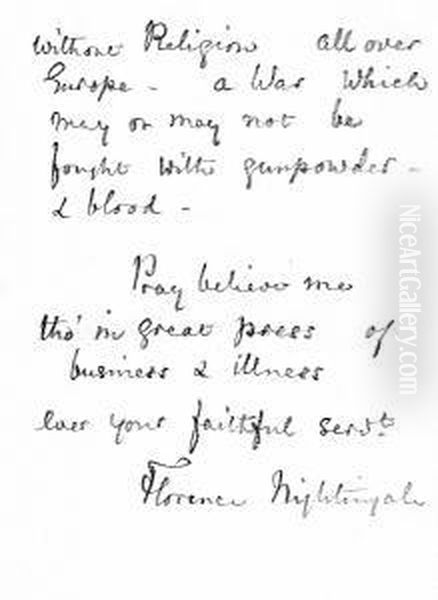 without Religion all over
Europe - a War which
may or may not be
fought with gunpowder -
& blood -
Pray believe me
tho' in great press of
business & illness
ever your faithful servt
Florence Nightingale
NiceArtGallery.com